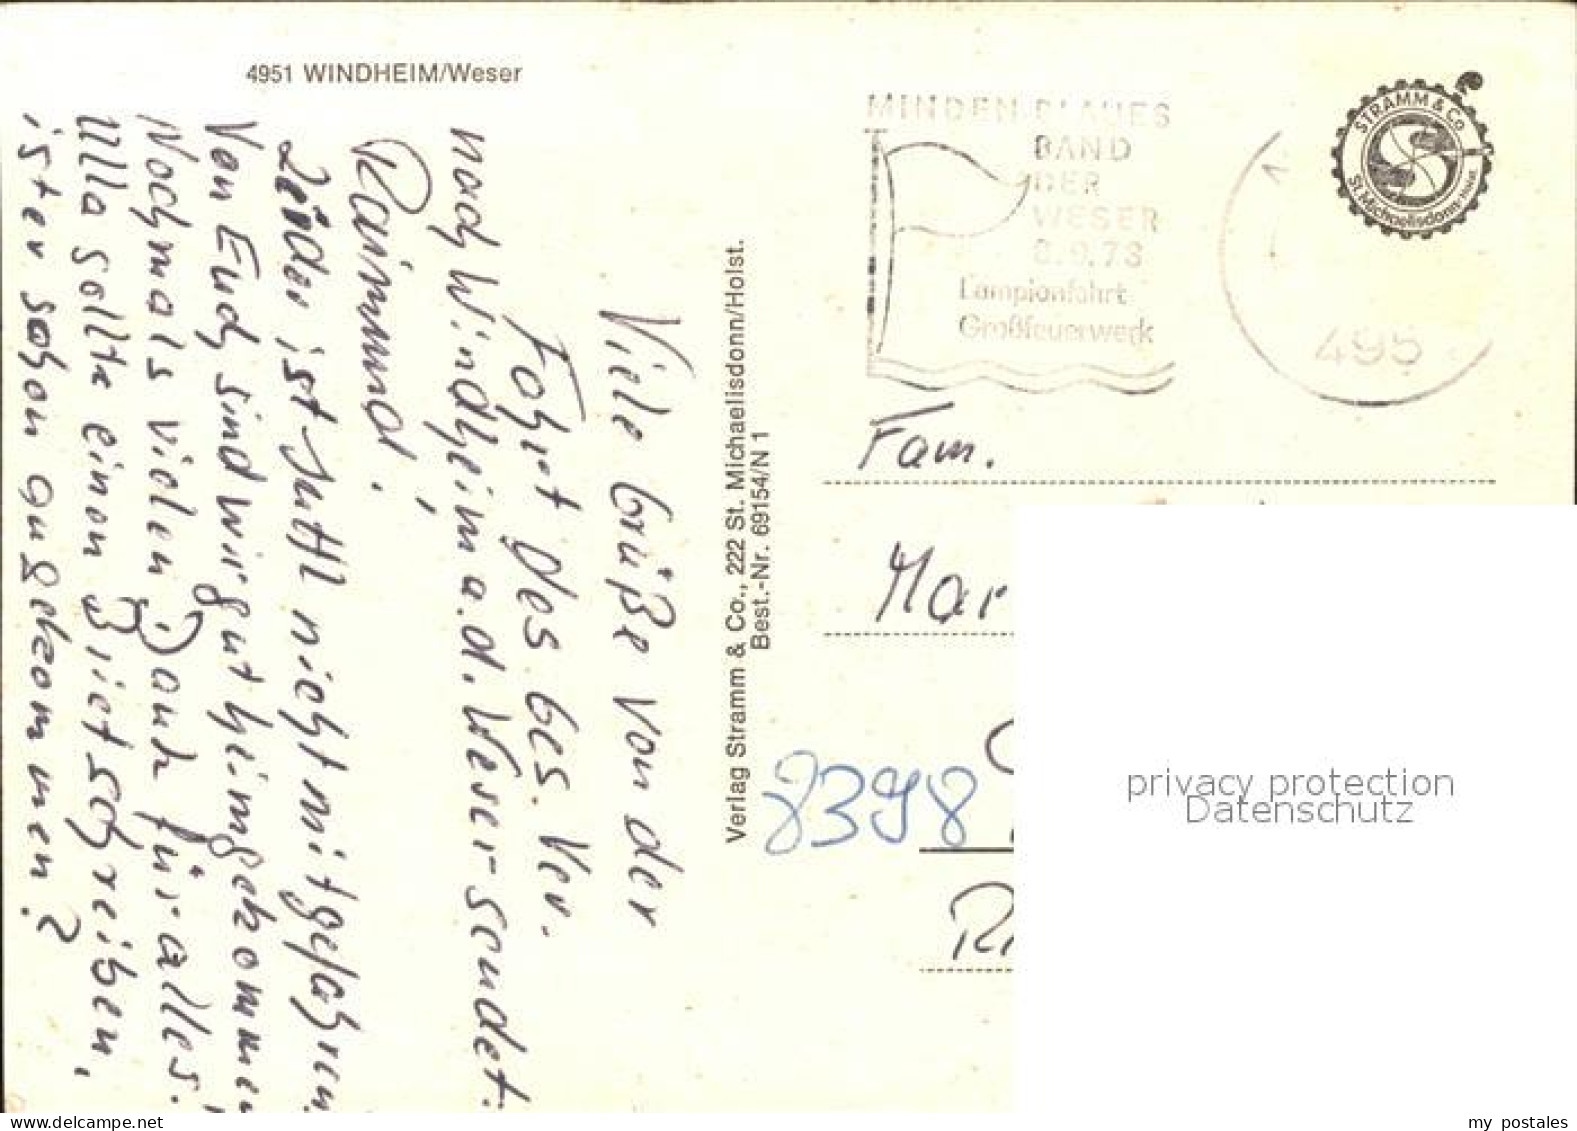 4951 WINDHEIM/Weser
Viele Grüße von der
Fahrt des Ges. Ver.
nach Windheim a.d. Weser sendet:
Raimund!
Leider ist Jutta nicht mitgefahren.
Von Euch sind wir gut heimgekommen
Nochmals vielen Dank für alles.
Ulla sollte einen Brief schreiben,
ist er schon angekommen?
Verlag Stramm & Co., 222 St. Michaelisdonn/Holst.
Best.-Nr. 69154/N 1
MINDEN BLAUES
BAND
DER
WESER
8.9.73
Lampionfahrt
Großfeuerwerk
495
STRAMM & Co
St. Michaelisdonn-Holst.
Fam.
Mar
8398
privacy protection
Datenschutz
www.ansichtskarten-center.de
my postales